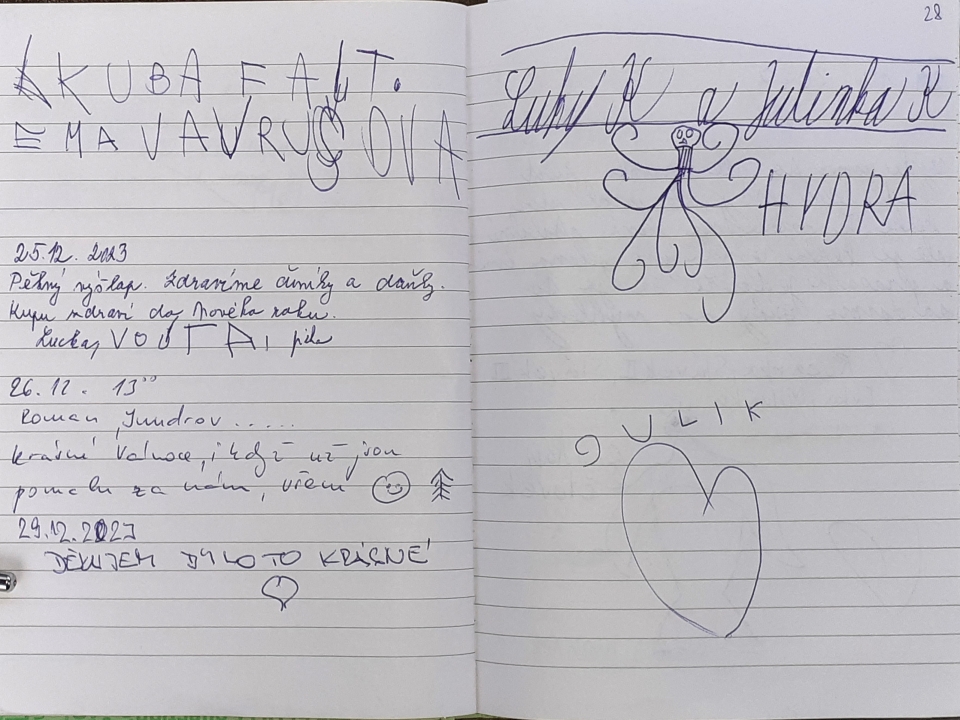 KUBA FALT.
EMA VAVRUŠOVA
25.12. 2023
Pěkný výšlap. Zdravíme čundry a
Kupu zdraví do Nového roku.
VOJTA,
26.12. 13⁰⁰
Roman, Jundrov .....
krásné Vánoce, i když už jsou
pomalu za námi, všem
29.12.2023
DĚKUJEM BYLO TO KRÁSNÉ
28
Luky K a Julinka K
HYDRA
JULIK